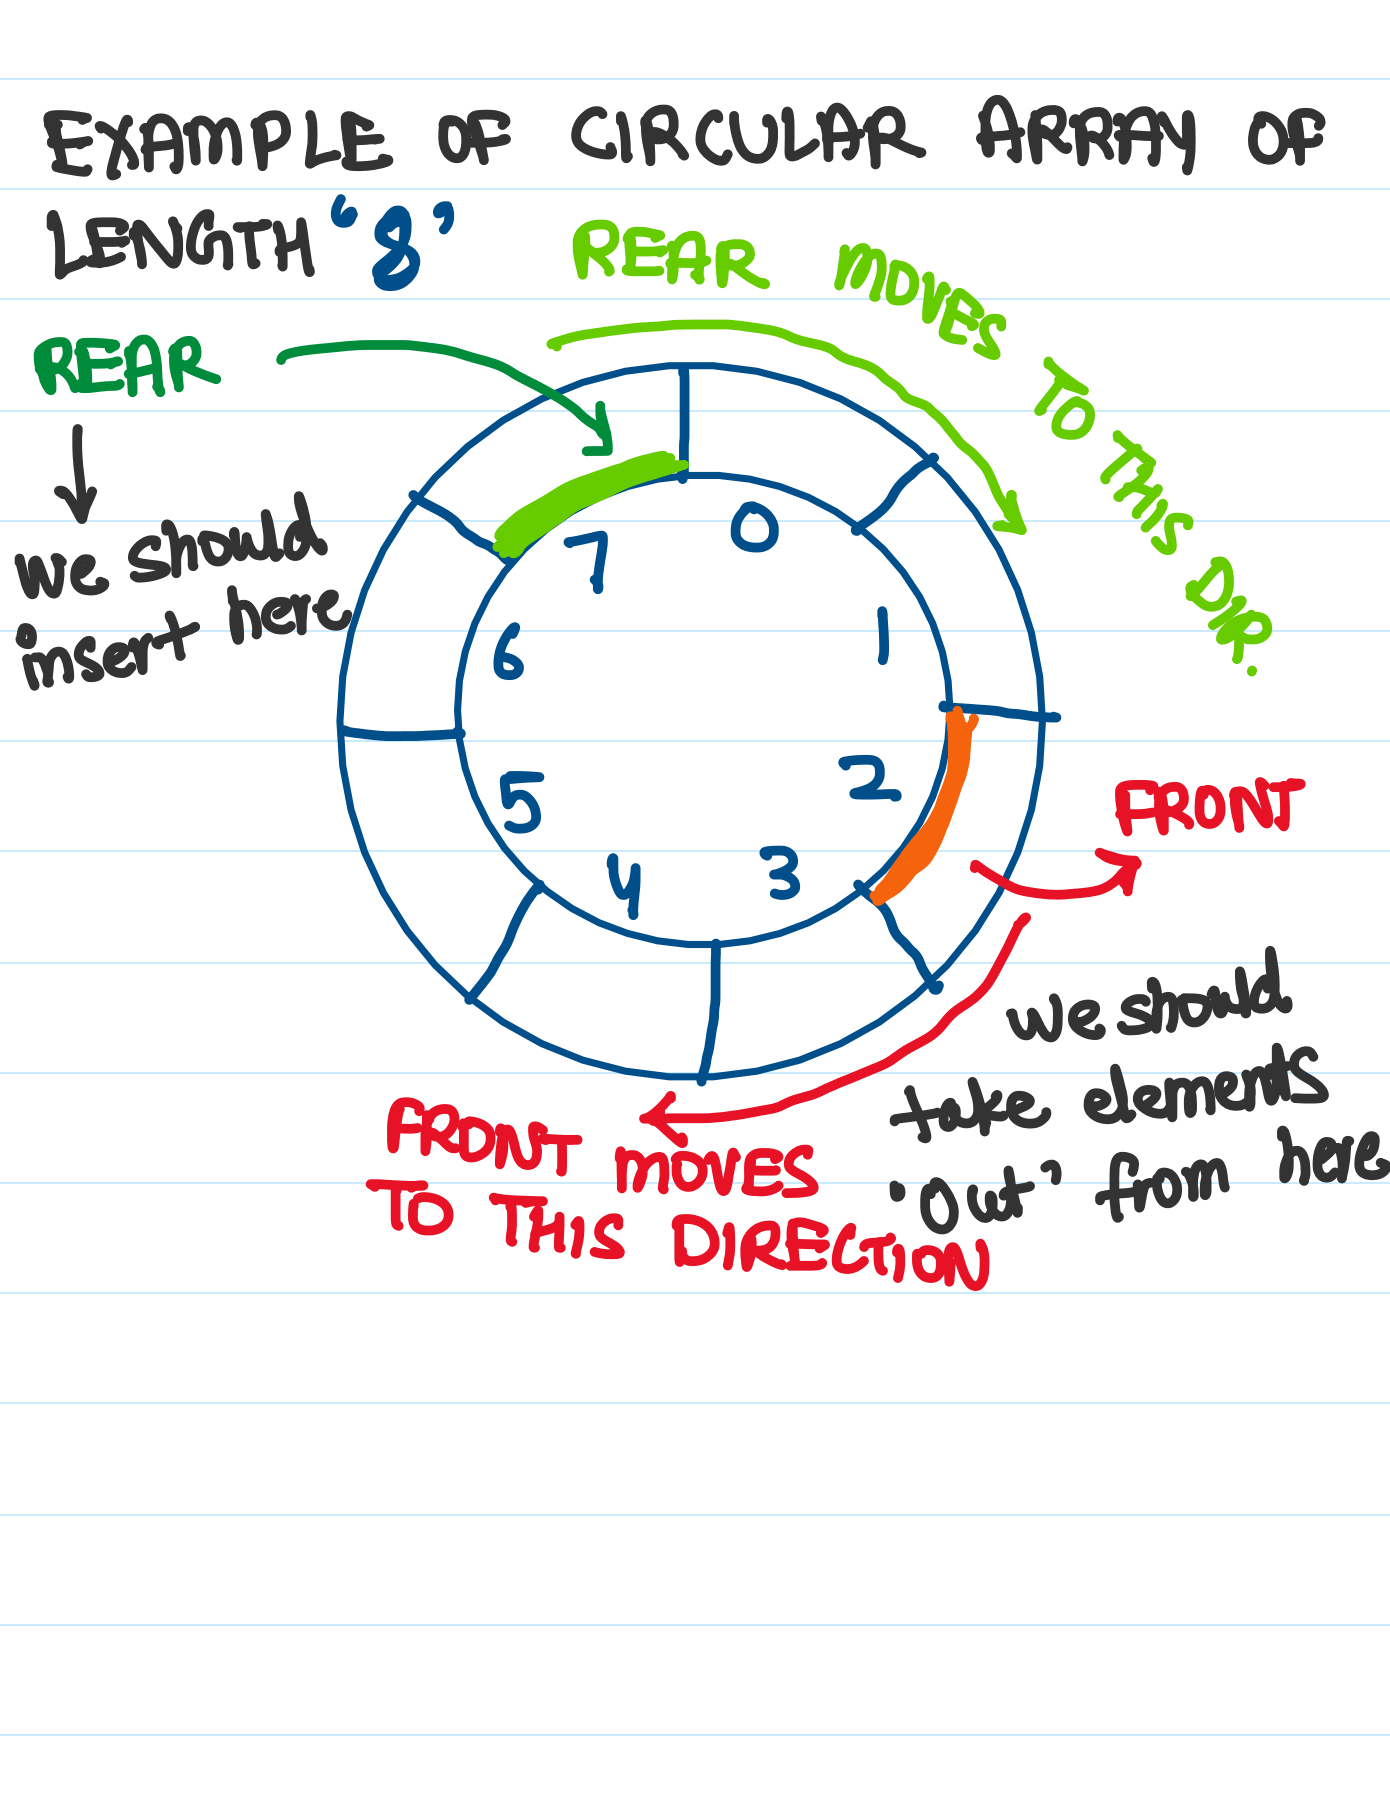 EXAMPLE OF CIRCULAR ARRAY OF
LENGTH "8"
REAR MOVES TO THIS DIR.
REAR
we should
insert here
0
1
2
3
4
5
6
7
FRONT
we should
take elements
'out' from here
FRONT MOVES
TO THIS DIRECTION